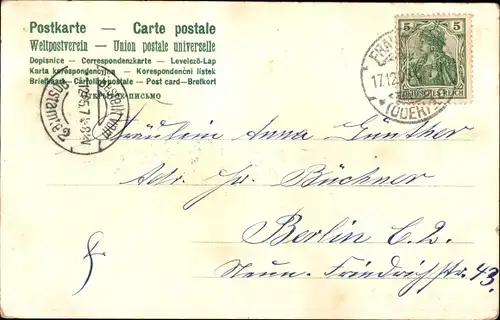 Postkarte — Carte postale
Weltpostverein — Union postale universelle
Dopisnice — Correspondenzkarte — Levelező-Lap
Karta korespondencyjna — Korespondenční lístek
Briefkaart — Cartolina postale — Post card — Brefkort
5 5
DEUTSCHES REICH
FRAN
17.12
(ODER)
Bestellt vom
Postamte 2
Fräulein Anna Günther
Adr. Hr. Büchner
Berlin C. 2.
Neue Friedrichstr. 43.